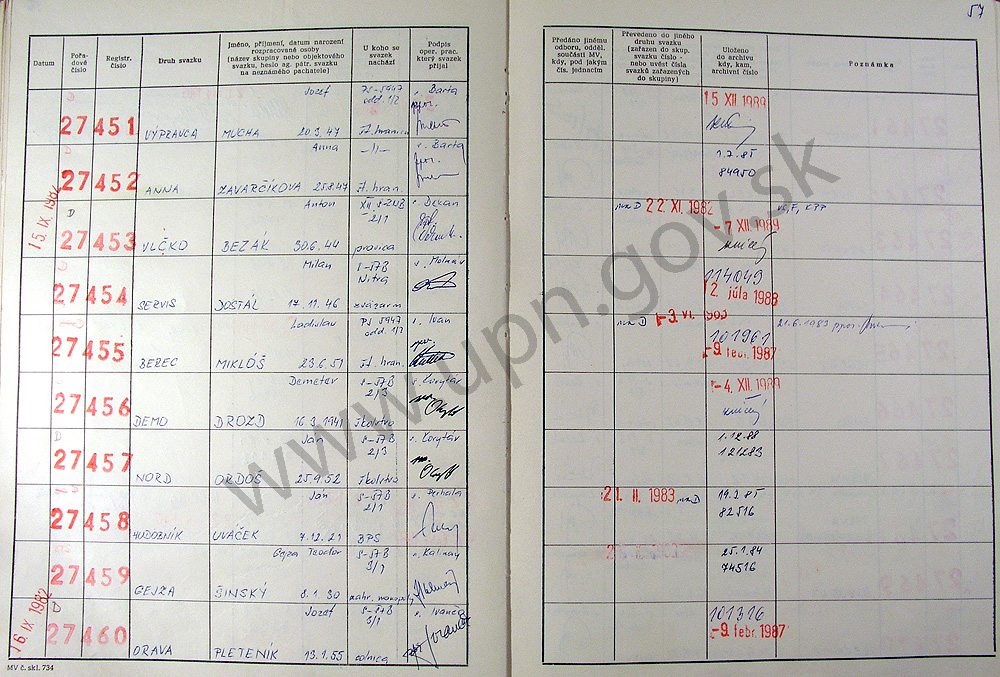 57
Datum
Pořadové číslo
Registr. číslo
Druh svazku
Jméno, příjmení, datum narození
rozpracované osoby
(název skupiny nebo objektového
svazku, heslo ag. pátr. svazku
na neznámého pachatele)
U koho se
svazek
nachází
Podpis
oper. prac.
který svazek
přijal
Předáno jinému
odboru, odděl.
součásti MV,
kdy, pod jakým
čís. jednacím
Převedeno do jiného
druhu svazku
(zařazen do skup.
svazku číslo -
nebo uvést čísla
svazků zařazených
do skupiny)
Uloženo
do archivu
kdy, kam,
archivní číslo
Poznámka
Jozef
Barta
27451 VÝPRAVCA MUCHA 20.3.47
15 XII 1989
Anna -||- Barta
27452 ANNA ZAVARČÍKOVA 25.8.47 žt. hran.
1.7.85
84950
15. IX. 1982
D
Anton XII. S-ZNB Dekan
2/1
27453 VLČKO BEZÁK 30.6.44 pravica
22. XI. 1982
-7 XII. 1989
Milan S-ŠTB
Nitra
27454 SERVIS DOSTÁL 17.11.46 zväzarm
114049
2. júla 1988
Ladislav PS 5947 Ivan
odd. 1/2
27455 BEREC MIKLÓŠ 23.6.51 žt. hran.
101961
-9 febr. 1987
21.6.1983 ppor.
Demeter S-ŠTB Korytár
2/3
27456 DEMO DROZD 16.3.1941 školstvo
-4. XII. 1989
D
Ján S-ŠTB Korytár
2/3
27457 NORD ORDOŠ 25.9.52 školstvo
1.12.88
121283
Ján S-ŠTB
2/1
27458 HUDOBNÍK UVÁČEK 7.12.21 BPS
21. II. 1983
19.2.85
82516
Gejza Teodor S-ŠTB Kalinay
3/1
27459 GEJZA ŠINSKÝ 8.1.30
25.1.84
74516
16. IX 1982
D
Jozef S-ŠTB Ivanco
3/1
27460 ORAVA PLETENÍK 13.1.55 colnica
101316
-9. febr. 1987
MV č. skl. 734
www.upn.gov.sk